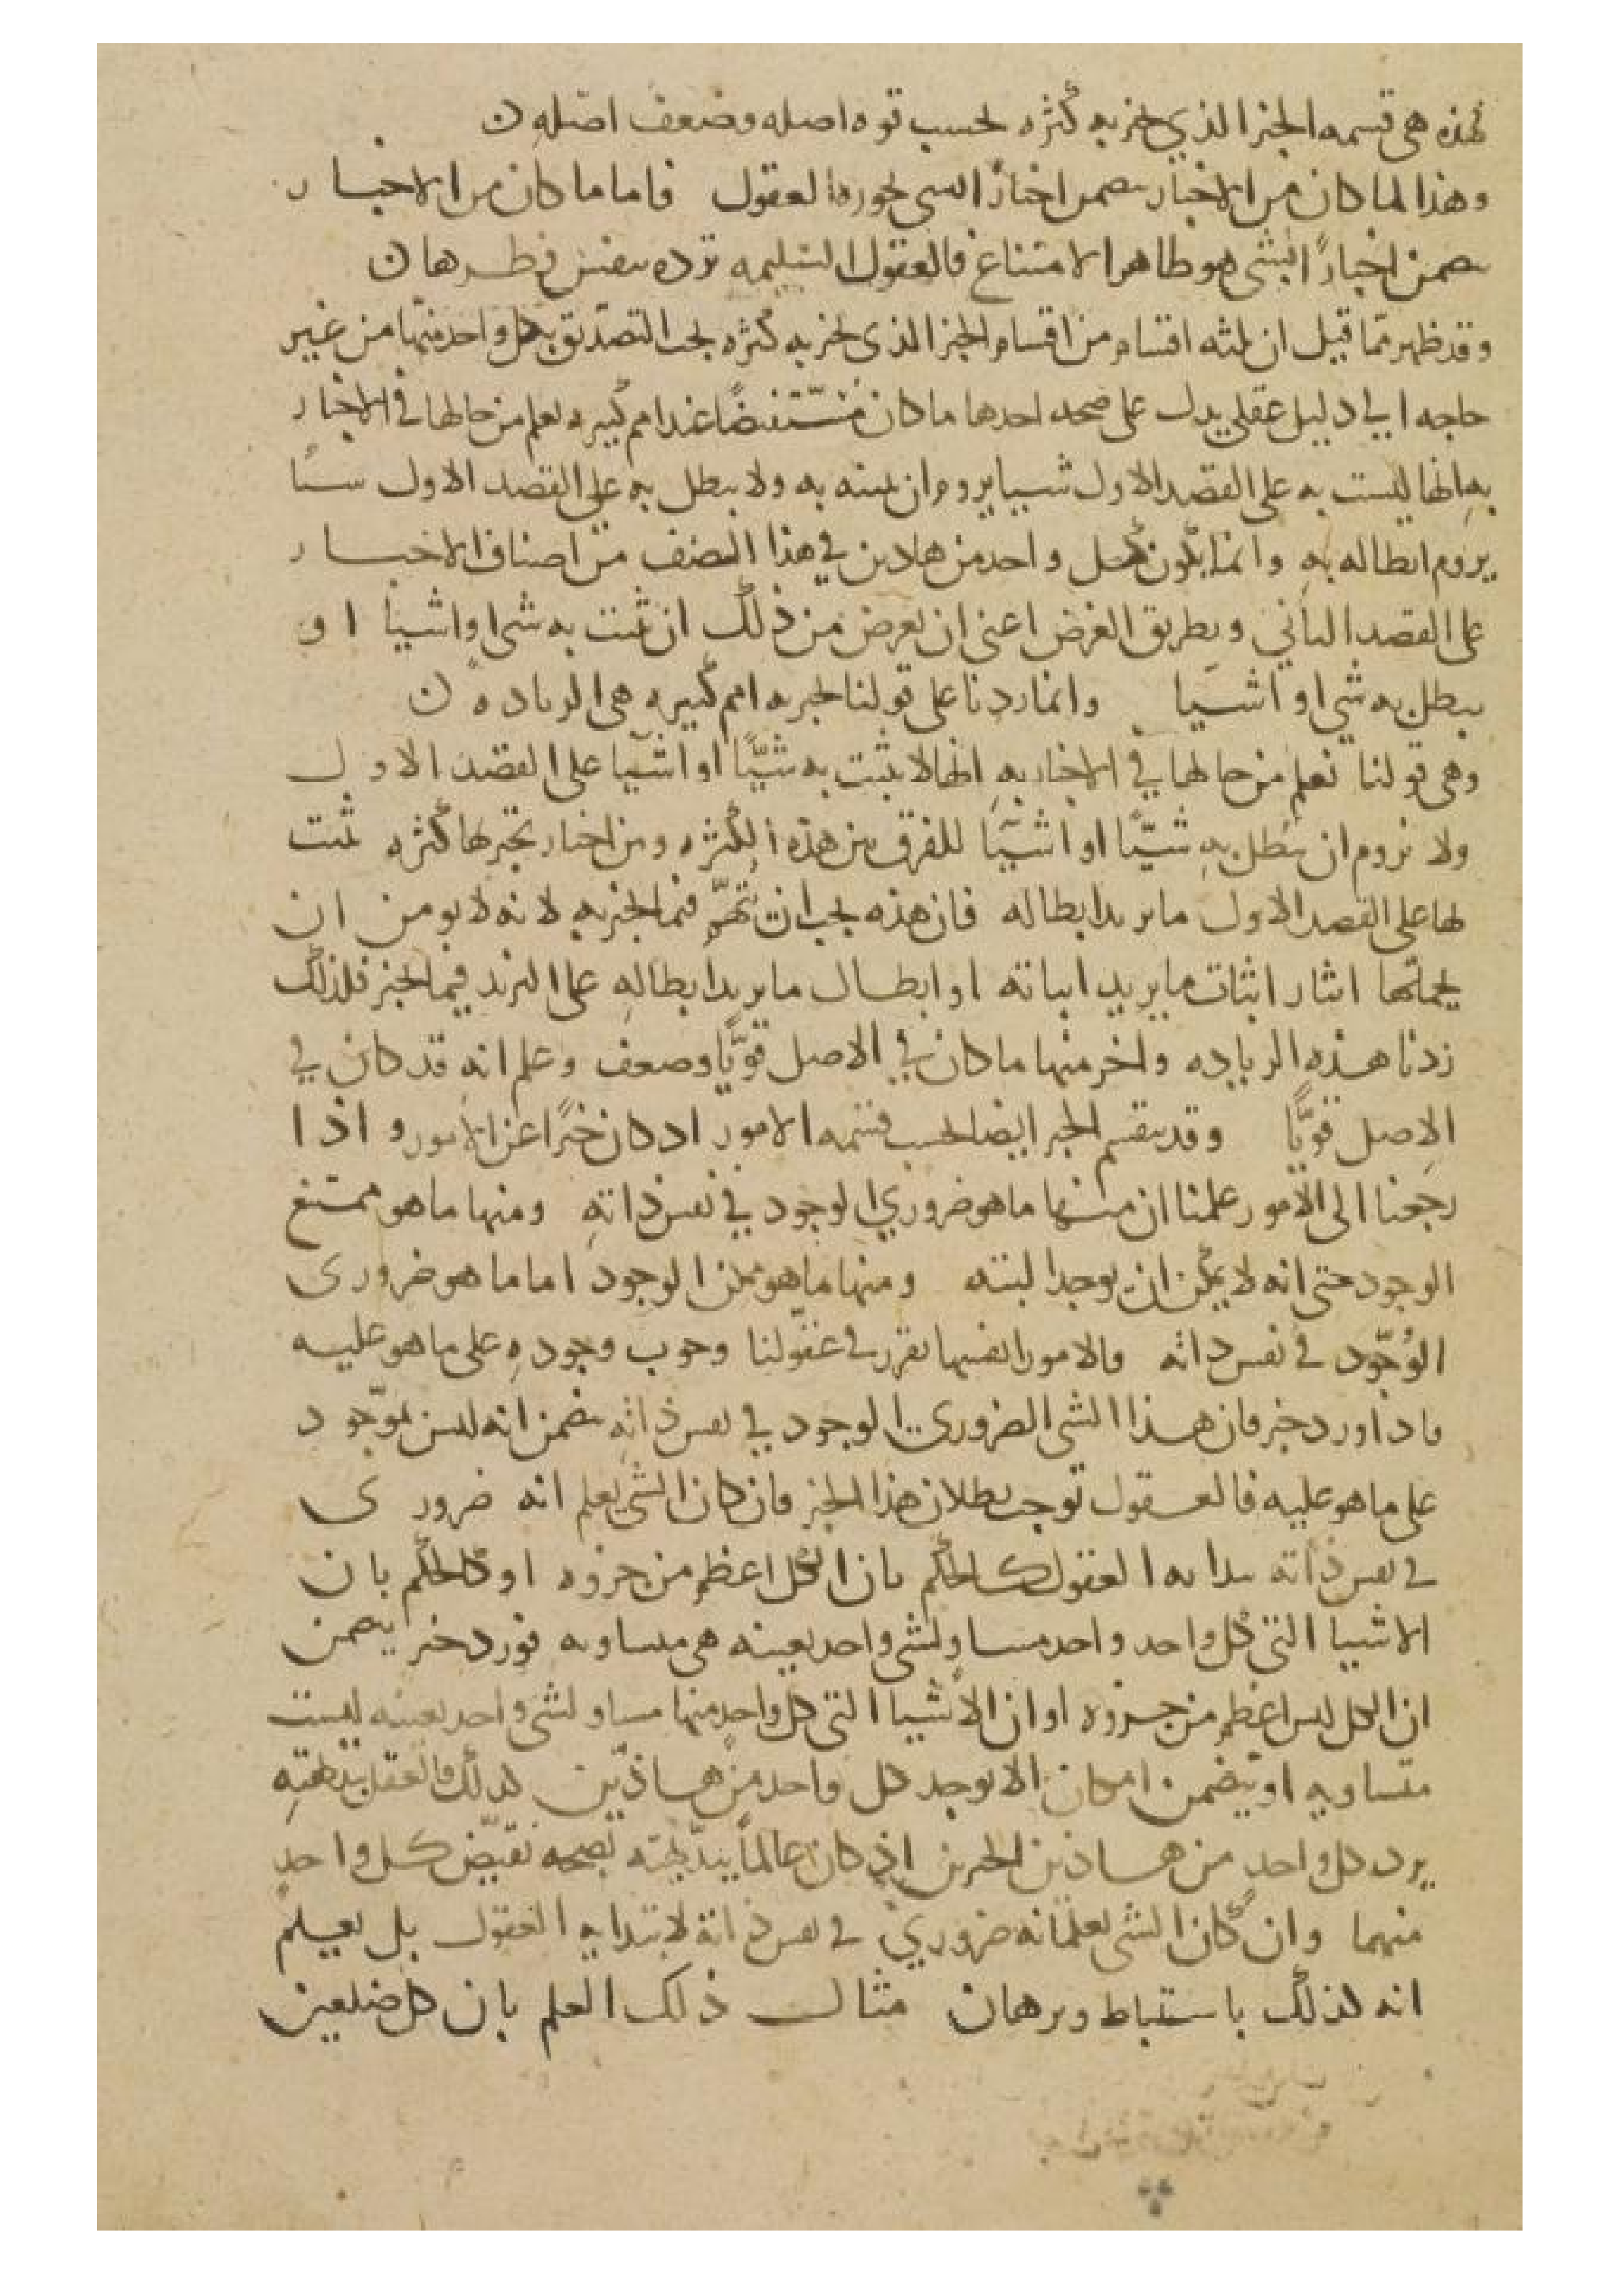 فهذه هى قسمه الخبر الذي يخبر به كثره بحسب قوه اصله وضعف اصله ن
وهذا لما كان من الاخبار يتضمن اخبارًا بشى تجوزه العقول فاما ما كان من الاخبار
يتضمن اخبارًا بشى هو ظاهر الامتناع فالعقول السليمه ترده بنفس فطرها ن
وقد ظهر مما قيل ان ثلثه اقسام من اقسام الخبر الذى يخبر به كثره يجب التصديق بكل واحد منها من غير
حاجه الى دليل عقلى يدل على صحه احدها ما كان مُستفيضًا عند امم كبيره نعلم من حالها فى الاخبار
به انها ليست به على القصد الاول شيا يروم ان يثبته به ولا يبطل به على القصد الاول شيا
يروم ابطاله به وانما يكون كل واحد من هاذين في هذا الصنف من اصناف الاخبار
على القصد الثاني وبطريق العرض اعنى ان يعرض من ذلك ان يثبت به شى او اشيا او
يبطل به شي او اشيا وانما زدنا على قولنا يخبر به امم كبيره هى الزياده ن
وهى قولنا نعلم من حالها في الاخبار به انها لا يثبت به شيًا او اشيا على القصد الاول
ولا تروم ان يبطل به شيًا او اشيا للفرق بين هذه الكثره وبين اخبار تخبر بها كثره يثبت
بها على القصد الاول ما يريد ابطاله فان هذه يجب ان تتهم فيما تخبر به لانه لا يومن ان
يحملها ايثار اثبات ما يريد اثباته او ابطال ما يريد ابطاله على التزيد فيما تخبر فلذلك
زدنا هذه الزياده واخر منها ما كان في الاصل قويًا وضعف وعلم انه قد كان في
الاصل قويًا وقد ينقسم الخبر ايضا بحسب قسمه الامور اذ كان خبرًا عن الامور و اذا
رجعنا الى الامور علمنا ان منها ما هو ضروري الوجود في نفس ذاته ومنها ما هو ممتنع
الوجود حتى انه لا يمكن ان يوجد البته ومنها ما هو ممكن الوجود اما ما هو ضرورى
الوُجود فى نفس ذاته فالامور انفسها تقرر فى عقولنا وجوب وجوده على ما هو عليه
فاذا ورد خبر فان هذا الشى الضرورى الوجود في نفس ذاته يتضمن انه ليس بموجود
على ما هو عليه فالعقول توجب بطلان هذا الخبر فان كان الشى يعلم انه ضرورى
فى نفس ذاته ببدايه العقول كالحكم بان الكل اعظم من جزوه او كالحكم بان
الاشيا التى كل واحد واحد مساو لشى واحد بعينه هى متساويه فورد خبر يتضمن
ان الكل ليس اعظم من جزوه او ان الاشيا التى كل واحد منها مساو لشى واحد بعينه ليست
متساويه او يتضمن امكان الا يوجد كل واحد من هاذين كذلك فالعقل ببدهته
يرد كل واحد من هاذين الخبرين اذ كان عالمًا ببدهته بصحه نقيض كل واحد
منهما وان كان الشى يعلم انه ضروري فى نفس ذاته لا ببدايه العقول بل يعلم
انه كذلك باستنباط وبرهان مثال ذلك العلم بان كل ضلعين